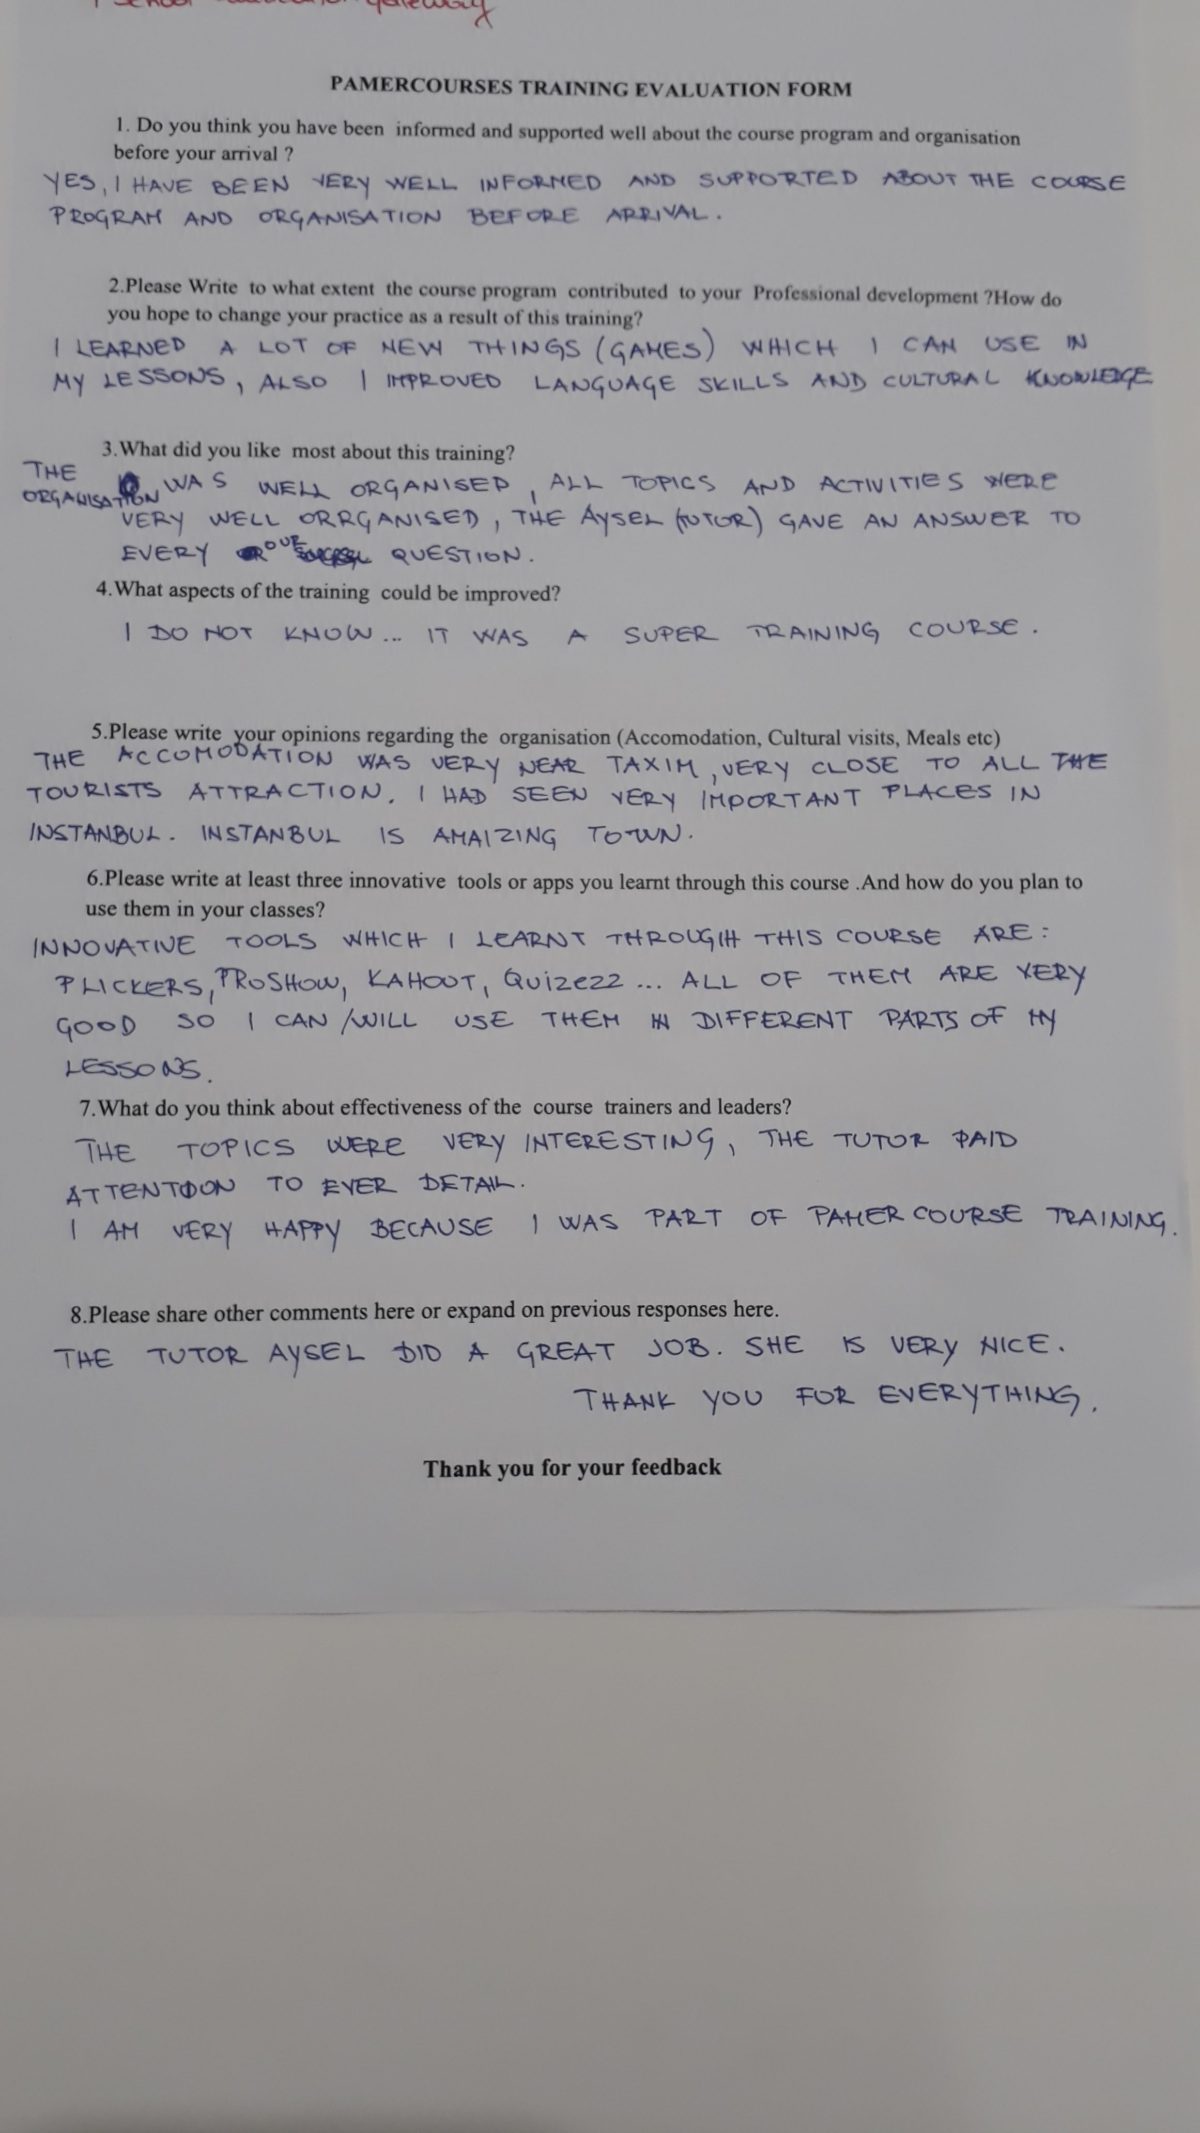 School gateway
PAMERCOURSES TRAINING EVALUATION FORM
1. Do you think you have been informed and supported well about the course program and organisation
before your arrival ?
YES, I HAVE BEEN VERY WELL INFORMED AND SUPPORTED ABOUT THE COURSE
PROGRAM AND ORGANISATION BEFORE ARRIVAL.
2.Please Write to what extent the course program contributed to your Professional development ?How do
you hope to change your practice as a result of this training?
I LEARNED A LOT OF NEW THINGS (GAMES) WHICH I CAN USE IN
MY LESSONS, ALSO I IMPROVED LANGUAGE SKILLS AND CULTURAL KNOWLEDGE
3.What did you like most about this training?
THE
ORGANISATION WAS WELL ORGANISED, ALL TOPICS AND ACTIVITIES WERE
VERY WELL ORRGANISED, THE AYSEL (TUTOR) GAVE AN ANSWER TO
EVERY OUR QUESTION.
4.What aspects of the training could be improved?
I DO NOT KNOW... IT WAS A SUPER TRAINING COURSE.
5.Please write your opinions regarding the organisation (Accomodation, Cultural visits, Meals etc)
THE ACCOMODATION WAS VERY NEAR TAXIM, VERY CLOSE TO ALL THE
TOURISTS ATTRACTION. I HAD SEEN VERY IMPORTANT PLACES IN
INSTANBUL. INSTANBUL IS AMAIZING TOWN.
6.Please write at least three innovative tools or apps you learnt through this course .And how do you plan to
use them in your classes?
INNOVATIVE TOOLS WHICH I LEARNT THROUGH THIS COURSE ARE:
PLICKERS, PROSHOW, KAHOOT, QUIZEZZ... ALL OF THEM ARE VERY
GOOD SO I CAN /WILL USE THEM IN DIFFERENT PARTS OF MY
LESSONS.
7.What do you think about effectiveness of the course trainers and leaders?
THE TOPICS WERE VERY INTERESTING, THE TUTOR PAID
ATTENTOON TO EVER DETAIL.
I AM VERY HAPPY BECAUSE I WAS PART OF PAMER COURSE TRAINING.
8.Please share other comments here or expand on previous responses here.
THE TUTOR AYSEL DID A GREAT JOB. SHE IS VERY NICE.
THANK YOU FOR EVERYTHING.
Thank you for your feedback